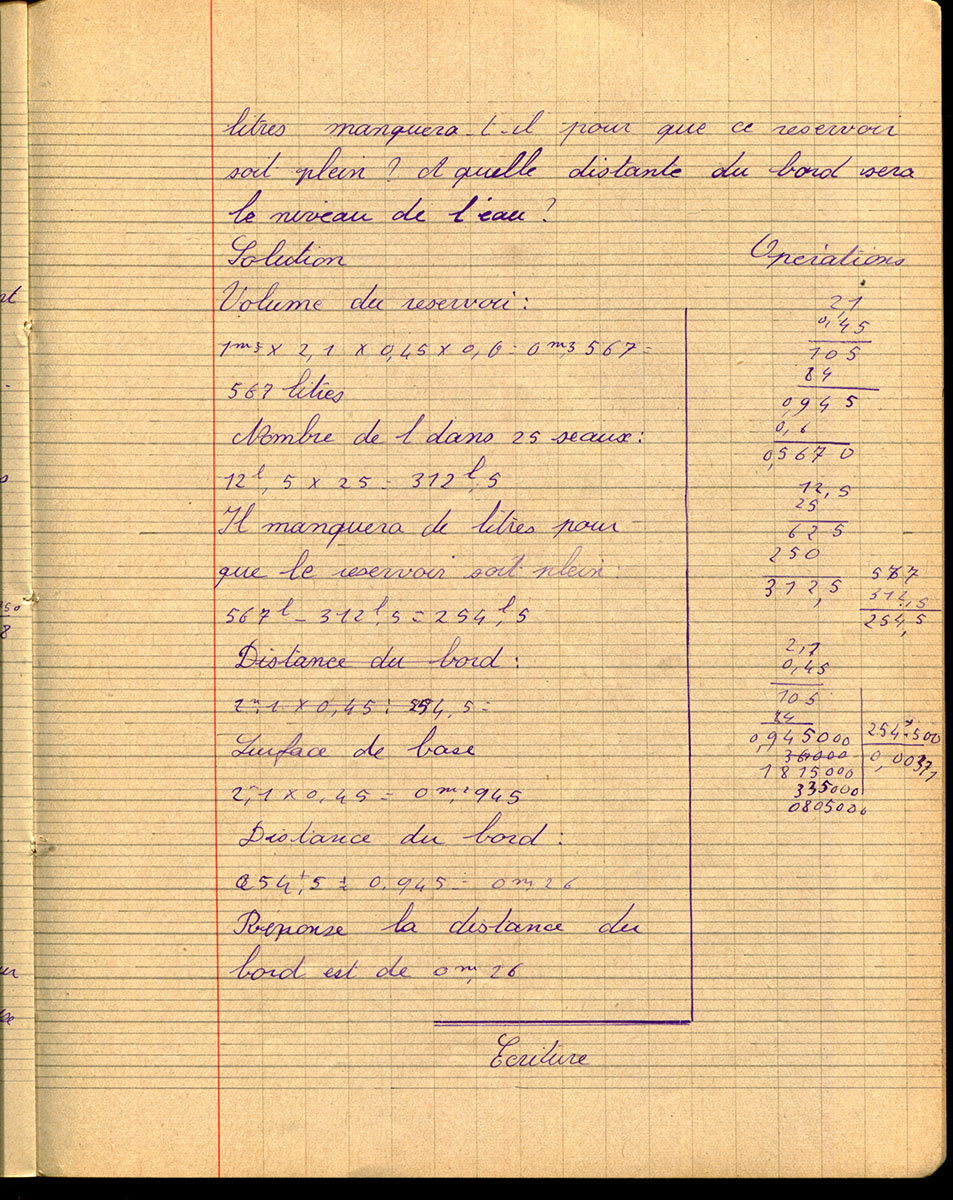 litres manquera-t-il pour que ce reservoir
soit plein ? A quelle distante du bord sera
le niveau de l'éau ?
Solution
Opérations
Volume du reservoir :
1m3 x 2,1 x 0,45 x 0,6 = 0m3 567 =
567 litres
Nombre de l dans 25 seaux :
12l,5 x 25 = 312l,5
Il manquera de litres pour
que le reservoir soit plein :
567l - 312l,5 = 254l,5
Distance du bord :
254,5 =
Surface de base
2,1 x 0,45 = 0m2 945
Distance du bord :
254,5 : 0,945 = 0m,26
Reponse la distance du
bord est de 0m,26
2,1
0,45
105
84
0,945
0,6
0,5670
12,5
25
625
250
312,5
567
312,5
254,5
2,1
0,45
105
84
0,945000
254,500
36000
1815000
335000
0805000
Ecriture